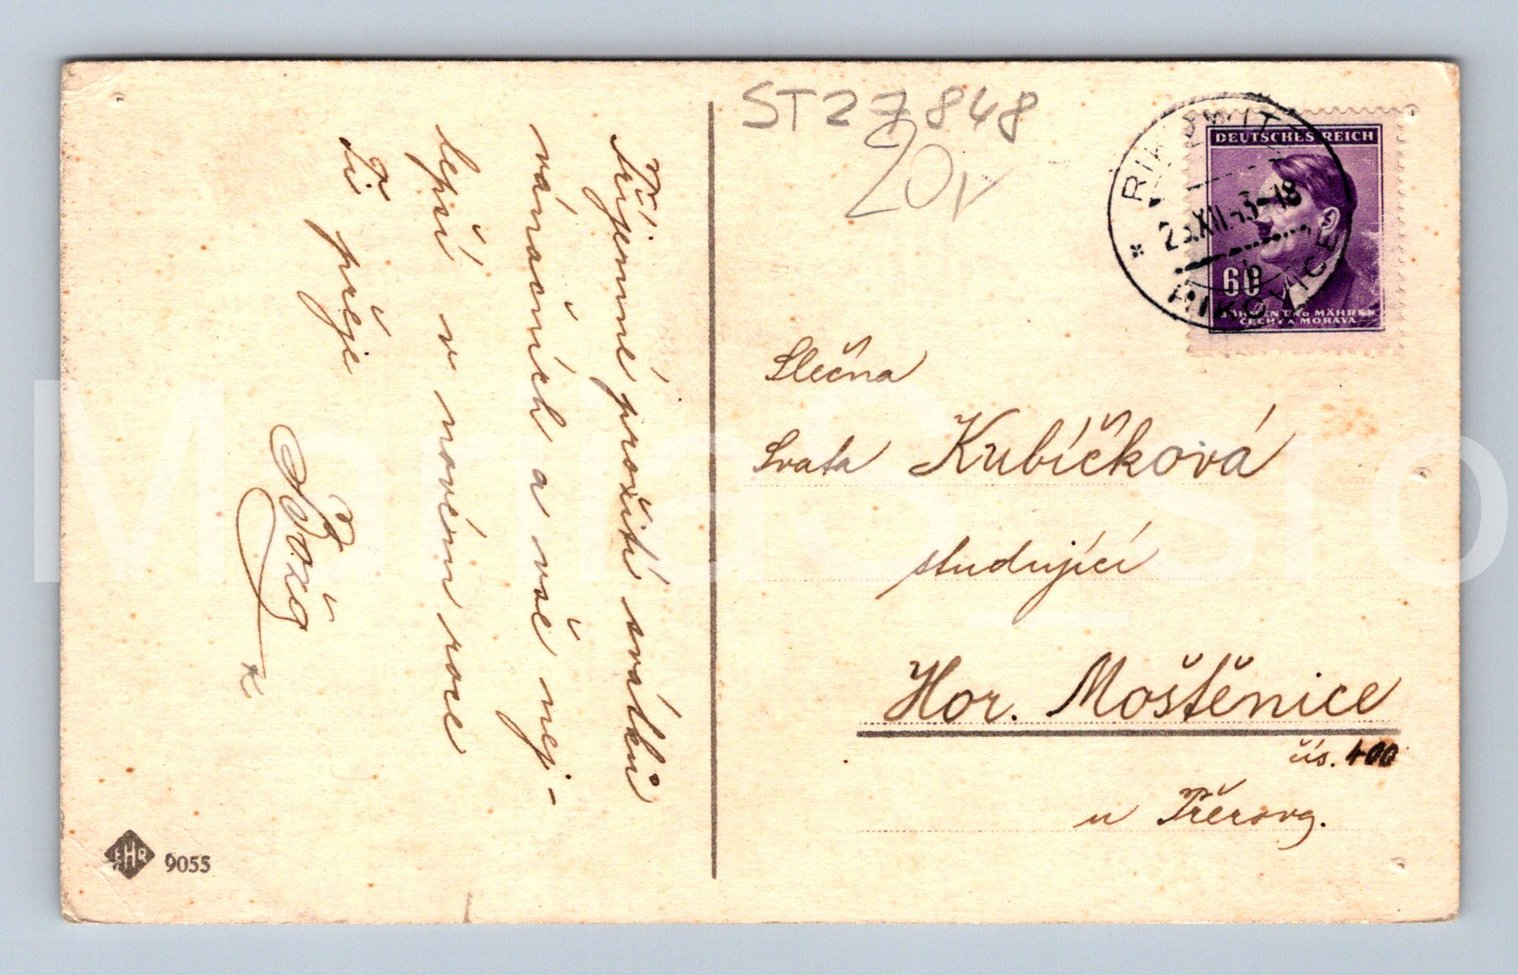 ST27848
20,-
DEUTSCHES REICH
60
BÖHMEN UND MÄHREN
ČECHY A MORAVA
Příjemné prožití svátků
vánočních a vše nej-
lepší v novém roce
Ti přeje
Boža
Slečna
Svata Kubíčková
studující
Hor. Moštěnice
čís. 100
u Přerova.
EHR 9055